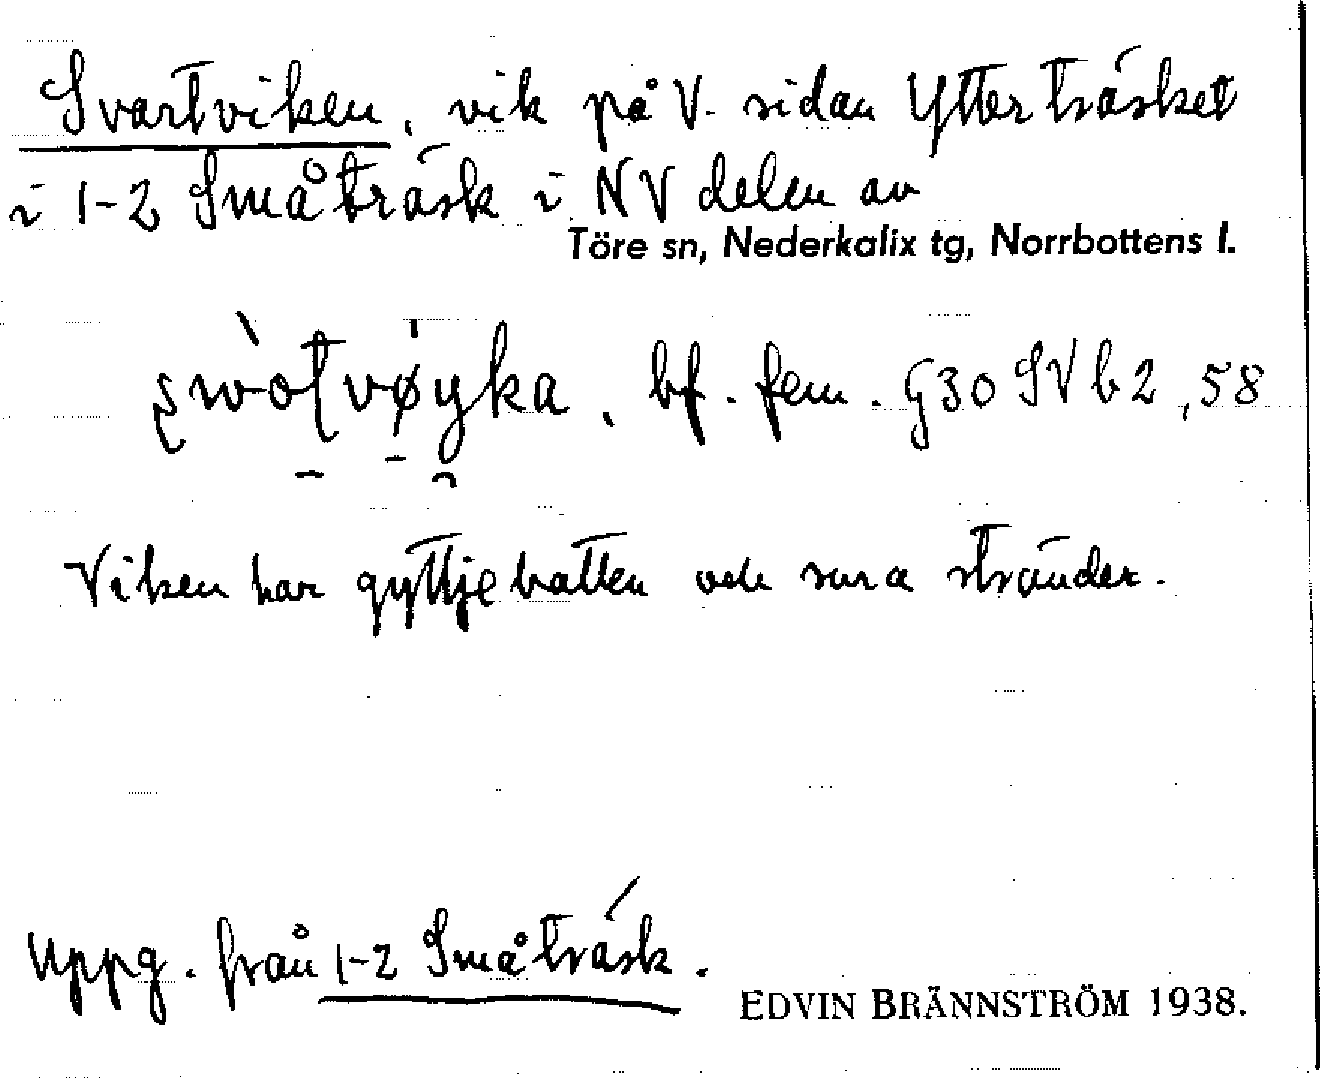 Svartviken, vik på V. sidan Ytterträsket
i 1-2 Småträsk i NV delen av
Töre sn, Nederkalix tg, Norrbottens l.
bf. fem. G30 SV b2, 58
Viken har gyttjebotten och sura stränder.
Uppg. från 1-2 Småträsk.
EDVIN BRÄNNSTRÖM 1938.